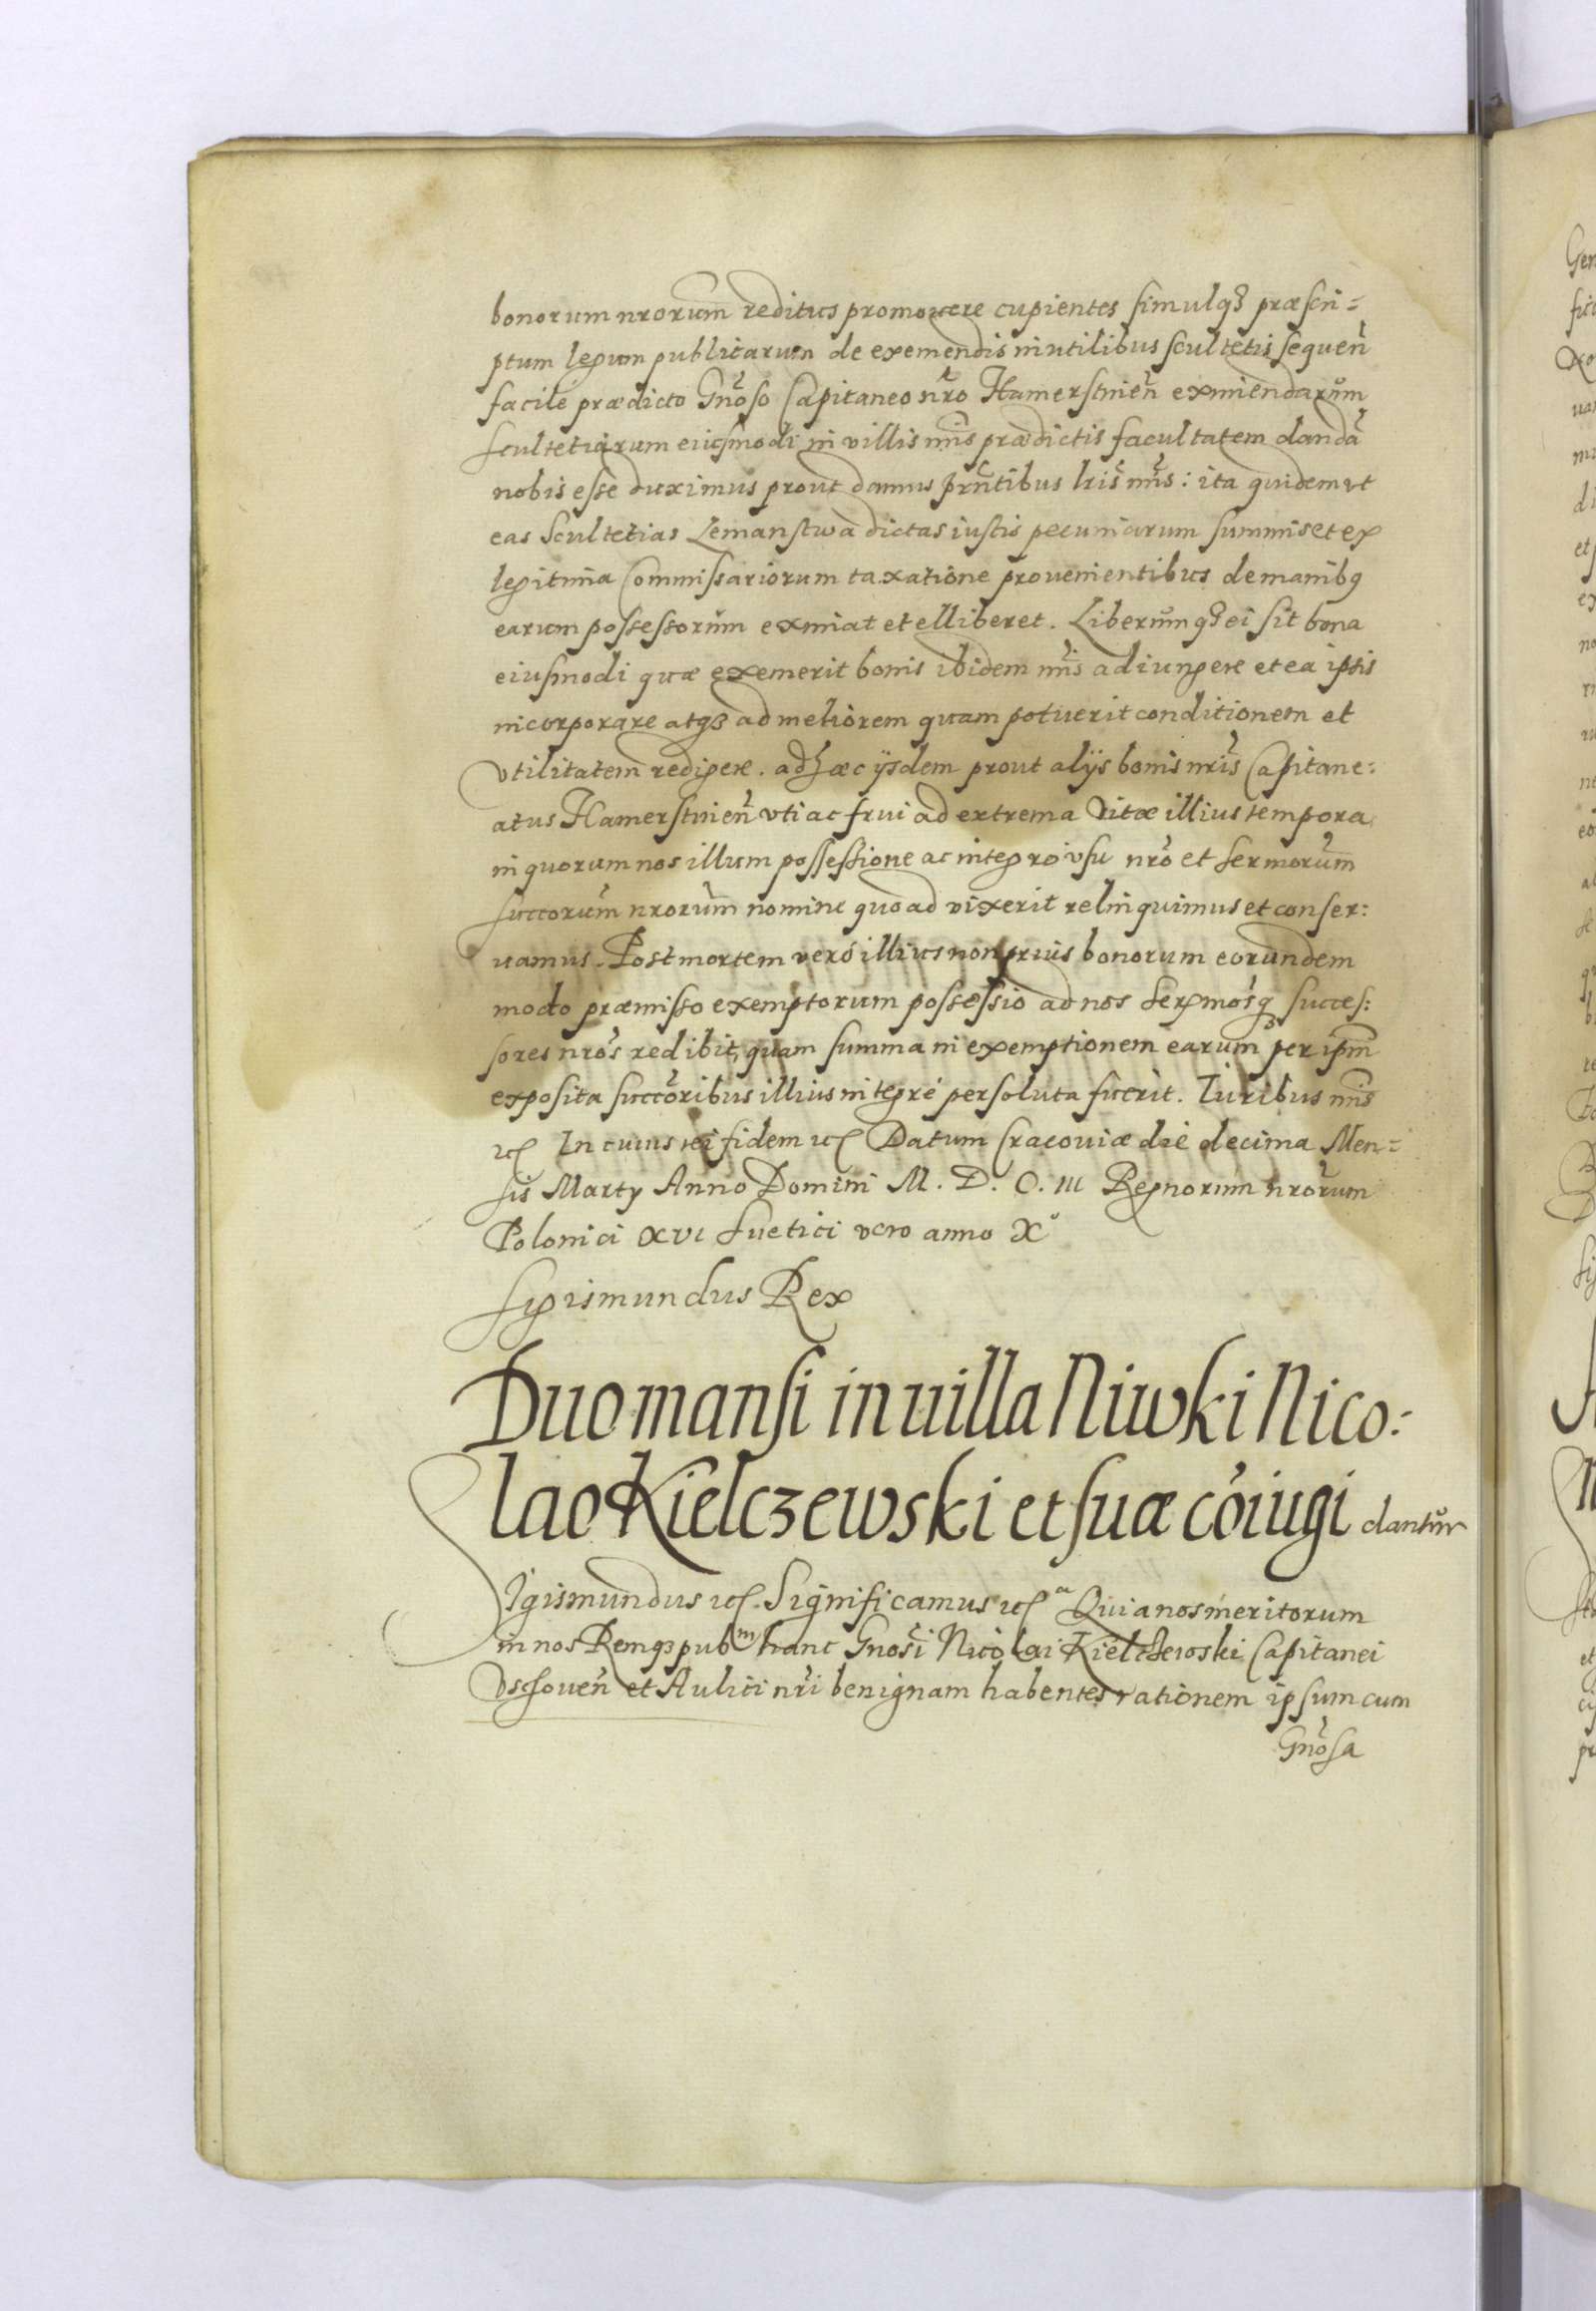 bonorum nrorum reditus promouere cupientes simulq3 præscri=
ptum legum publicarum de exemendis inutilibus scultetis sequeñ
facile prædicto Gnoso Capitaneo nro Hamerstinieñ eximiendarum
scultetiarum eiusmodi in villis nris prædictis facultatem dandã
nobis esse duximus prout damus prñtibus lris nris: ita quidem vt
eas Scultetias Lemanstwa dictas iustis pecuniarum summis et ex
legitima Commissariorum taxatione prouenientibus de manibq
earum possessorum eximat et elliberet. Liberumq3 ei sit bona
eiusmodi quæ exemerit bonis ibidem nris adiungere et ea ipsis
incorporare atq3 ad meliorem quam potuerit conditionem et
vtilitatem redigere. adhæc ijsdem prout alijs bonis nris Capitane:
atus Hamerstinieñ vti ac frui ad extrema vitæ illius tempora
in quorum nos illum possessione ac integro vsu nro et sermorum
succorum nrorum nomine quoad vixerit relinquimus et conser:
uamus. Post mortem veró illius non prius bonorum eorundem
modo præmisso exemptorum possessio ad nos Sermosq3 succes:
sores nros redibit, quam summa in exemptionem earum per ipm
exposita succoribus illius integré persoluta fuerit. Iuribus nris
etc In cuius rei fidem etc Datum Cracouiæ die decima Men=
sis Marty Anno Domini M. D. C. III Regnorum nrorum
Polonici XVI Suetici vero anno X°
Sigismundus Rex
Duo mansi in uilla Niwki Nico:
lao Kielczewski et suæ cõiugi dantur
Sigismundus etc. Significamus etc ᵃ Quia nos meritorum
in nos Remq3 pubᵐ hanc Gnosi Nicolai Kielczewski Capitanei
Vschoueñ et Aulici nri benignam habentes rationem ipsum cum
Gnosa